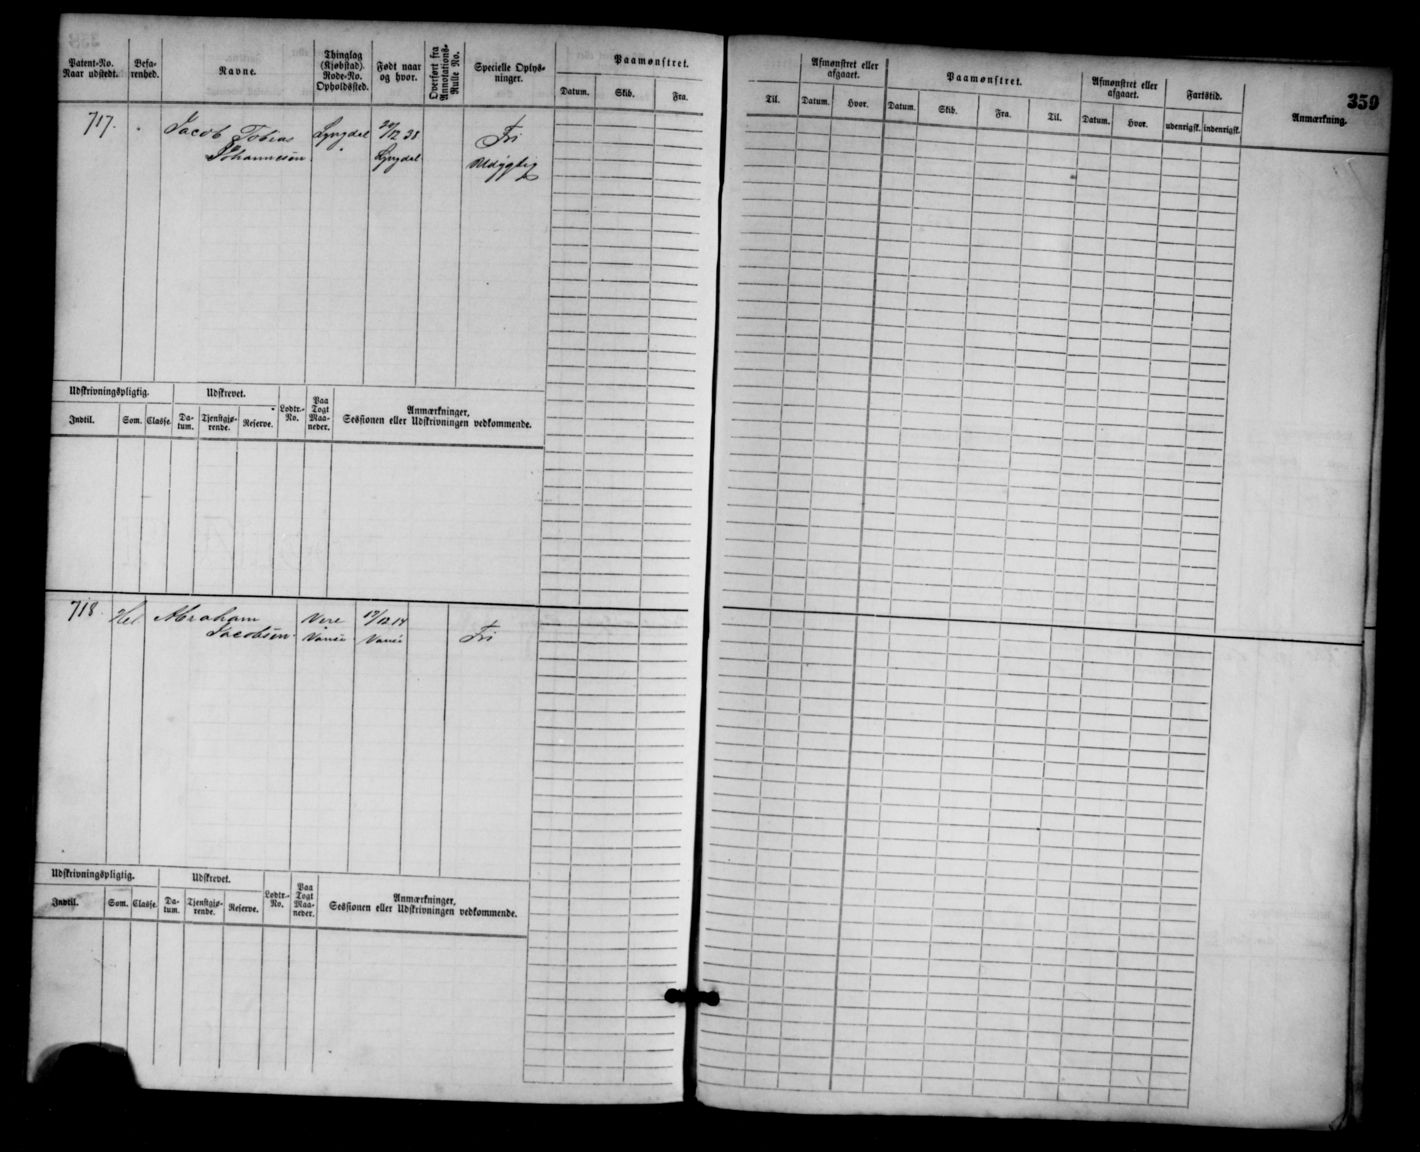 359
Patent-No. Naar udstedt.
Befarenhed.
Navne.
Thinglag (Kjøbstad). Rode-No. Opholdssted.
Født naar og hvor.
Overført fra Annotations-Rulle No.
Specielle Oplysninger.
Paamønstret.
Datum. Skib. Fra.
Til.
Afmønstret eller afgaaet.
Datum. Hvor.
Paamønstret.
Datum. Skib. Fra. Til.
Afmønstret eller afgaaet.
Datum. Hvor.
Fartstid.
udenrigsk. indenrigsk.
Anmærkning.
717. Jacob Tobias Lyngdal 20/12 38 Fri
Johannesen. Lyngdal
Udskrivningspligtig. Udskrevet.
Indtil. Som. Classe. Datum. Tjenstgjørende. Reserve. Lodtr.-No. Paa Togt Maaneder.
Anmærkninger,
Sessionen eller Udskrivningen vedkommende.
718. Hel Abraham 17/12 14
Jacobsen. Vanse Vanse Fri
Udskrivningspligtig. Udskrevet.
Indtil. Som. Classe. Datum. Tjenstgjørende. Reserve. Lodtr.-No. Paa Togt Maaneder.
Anmærkninger,
Sessionen eller Udskrivningen vedkommende.